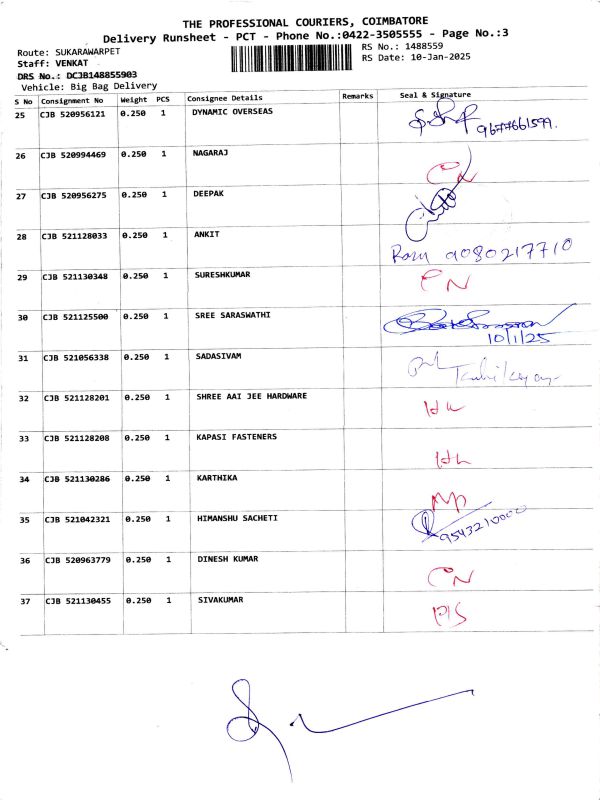 THE PROFESSIONAL COURIERS, COIMBATORE
Delivery Runsheet - PCT - Phone No.:0422-3505555 - Page No.:3
Route: SUKARAWARPET
RS No.: 1488559
Staff: VENKAT
RS Date: 10-Jan-2025
DRS No.: DCJB148855903
Vehicle: Big Bag Delivery
S No Consignment No Weight PCS Consignee Details Remarks Seal & Signature
25 CJB 520956121 0.250 1 DYNAMIC OVERSEAS
9677661599.
26 CJB 520994469 0.250 1 NAGARAJ
CN
27 CJB 520956275 0.250 1 DEEPAK
28 CJB 521128033 0.250 1 ANKIT
Ram 9080217710
29 CJB 521130348 0.250 1 SURESHKUMAR
CN
30 CJB 521125500 0.250 1 SREE SARASWATHI
10/1/25
31 CJB 521056338 0.250 1 SADASIVAM
32 CJB 521128201 0.250 1 SHREE AAI JEE HARDWARE
33 CJB 521128208 0.250 1 KAPASI FASTENERS
34 CJB 521130286 0.250 1 KARTHIKA
35 CJB 521042321 0.250 1 HIMANSHU SACHETI
9543210000
36 CJB 520963779 0.250 1 DINESH KUMAR
CN
37 CJB 521130455 0.250 1 SIVAKUMAR